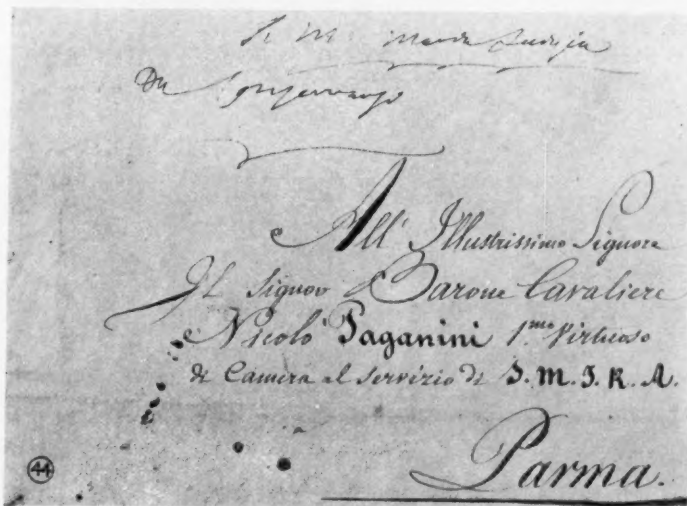 S. M. Maria Luigia
Da
All' Illustrissimo Signore
Il Signor Barone Cavaliere
Nicolò Paganini 1.mo Virtuoso
di Camera al Servizio di S. M. I. R. A.
Parma.
44